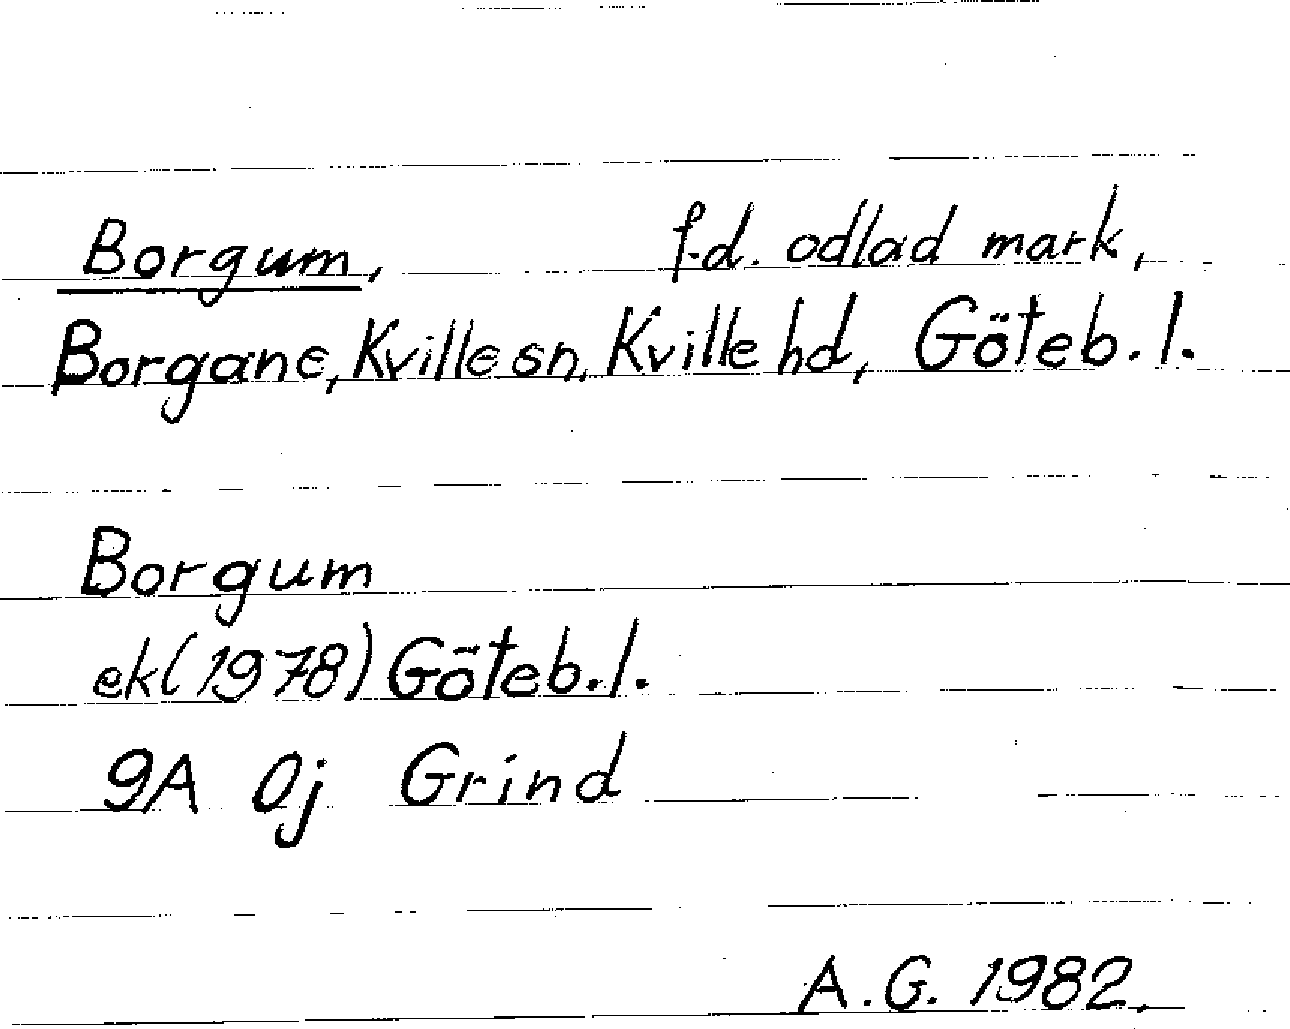 Borgum, f.d. odlad mark,
Borgane, Kville sn, Kville hd, Göteb. l.
Borgum
ek (1978) Göteb. l.
9A 0j Grind
A.G. 1982.